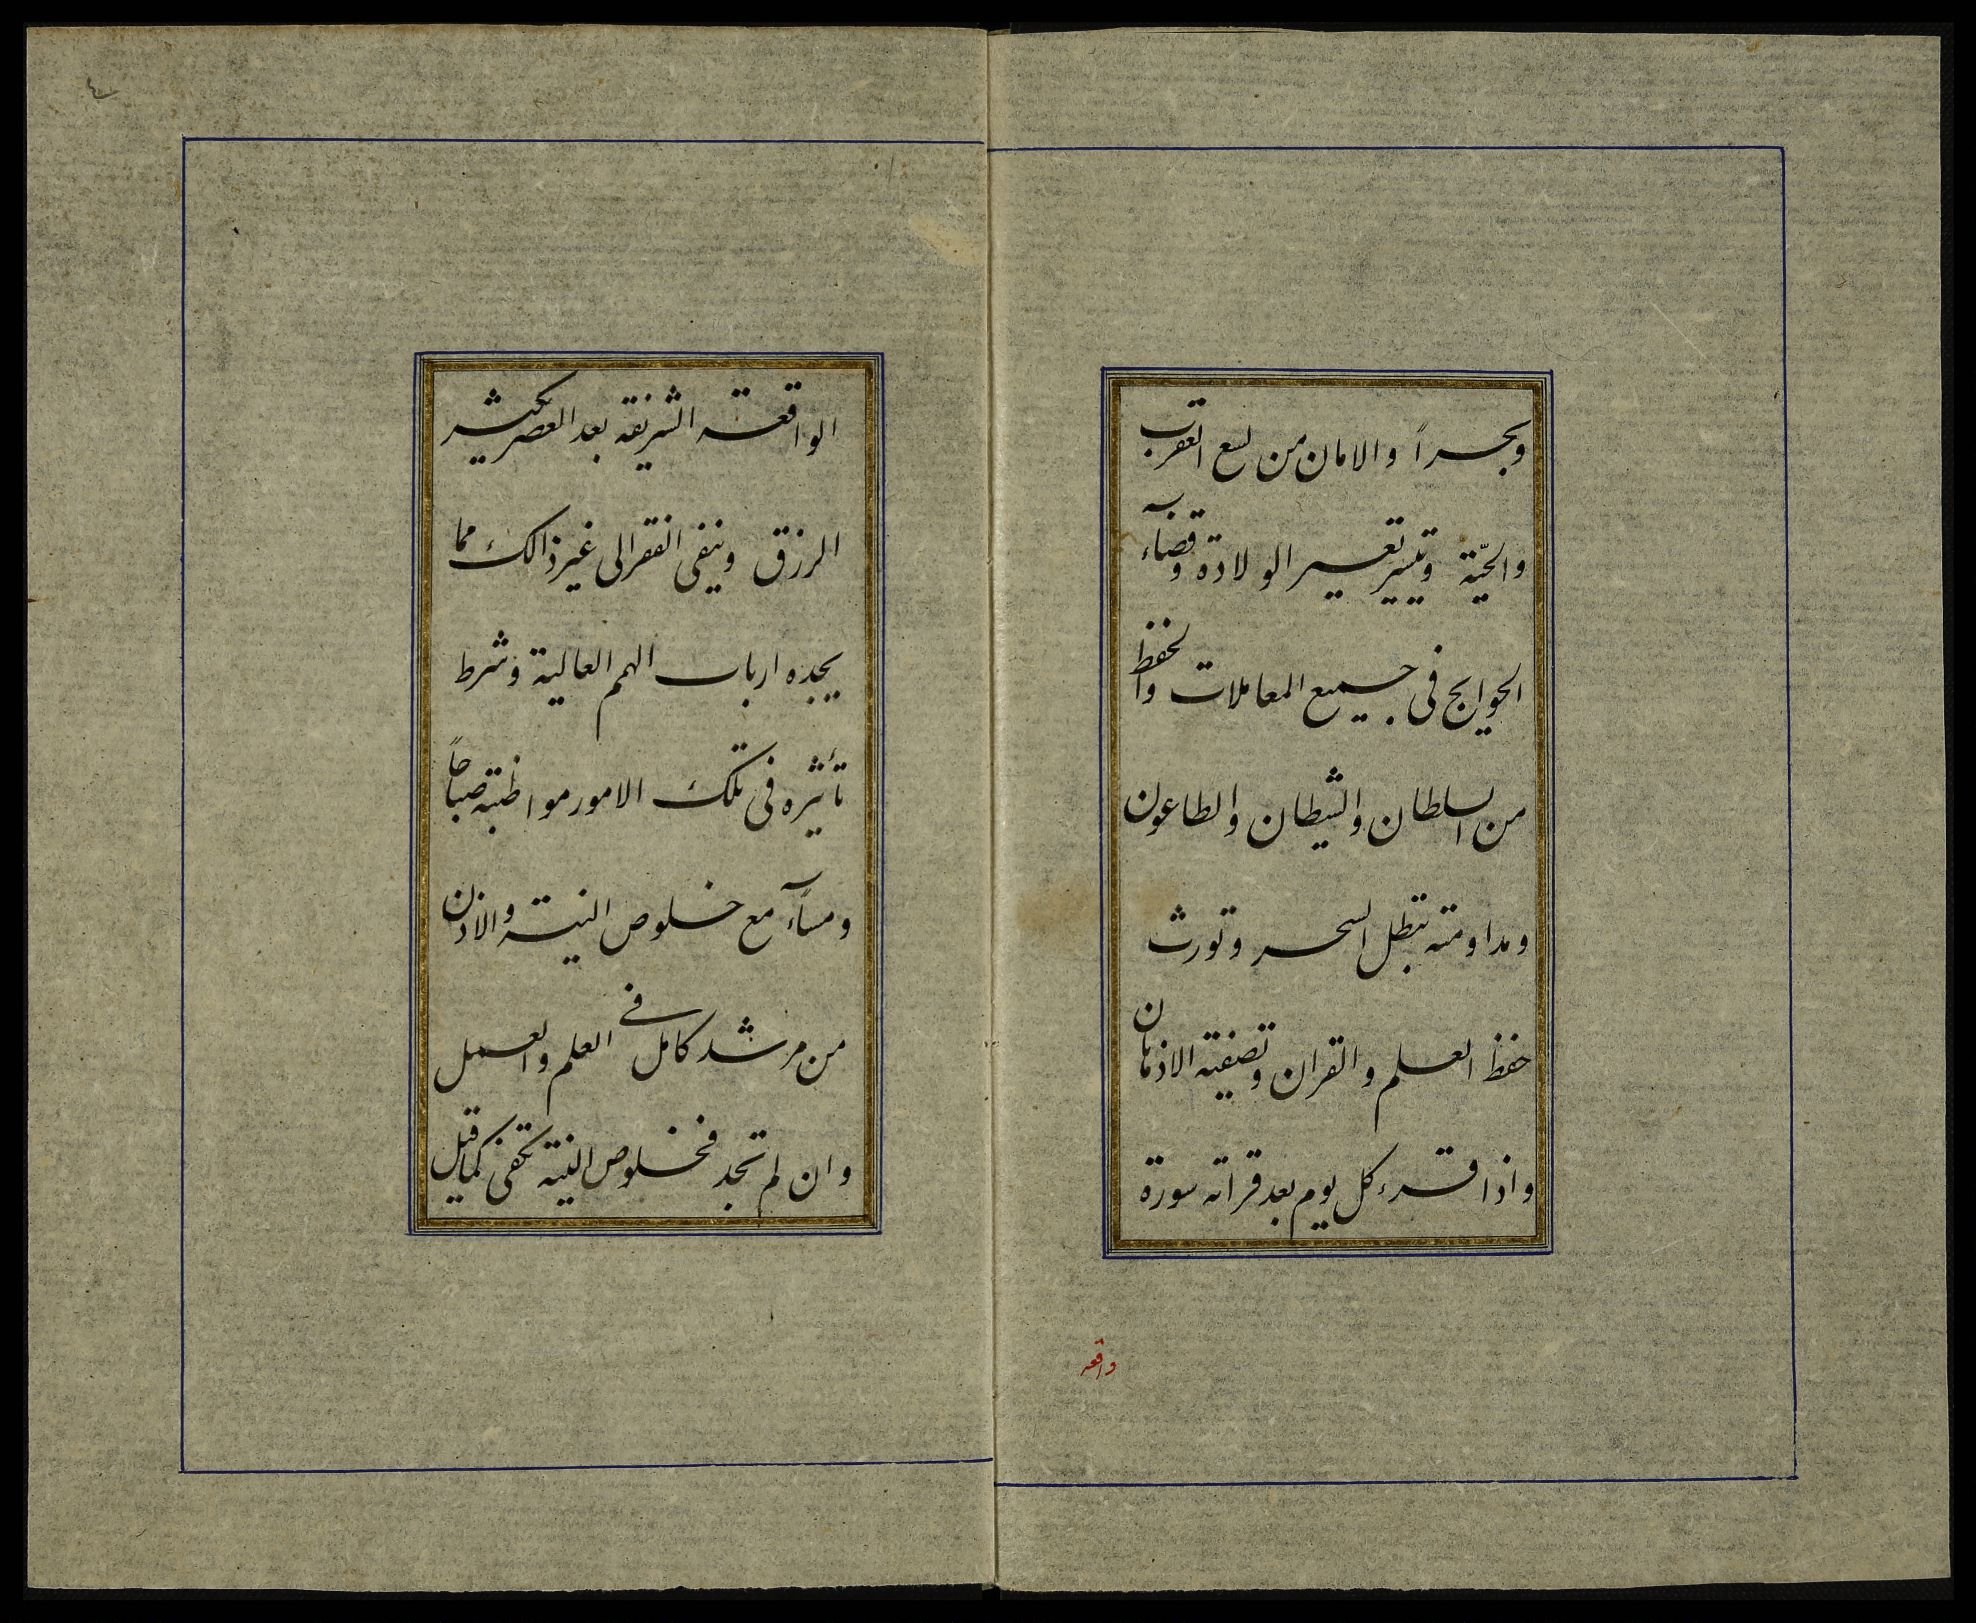 وبحراً والامان من لسع العقرب
والحيّة وتيسير تعسير الولادة وقضاء
الحوايج فى جميع المعاملات والحفظ
من السلطان والشيطان والطاعون
ومداومته تبطل السحر وتورث
حفظ العلم والقران وتصفيته الاذهان
واذا قرء كل يوم بعد قراته سورة
واقعه
الواقعة الشريفه بعد العصر يكثر
الرزق وينفى الفقر الى غير ذالك مما
يجده ارباب الهمم العالية وشرط
تأثيره فى تلك الامور مواظبته صباحاً
ومسآء مع خلوص النية والاذن
من مرشد كامل فى العلم والعمل
وان لم تجد فخلوص النية تكفى كما قيل